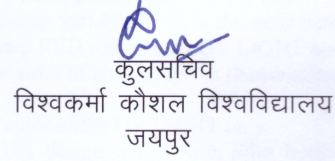 कुलसचिव
विश्वकर्मा कौशल विश्वविद्यालय
जयपुर